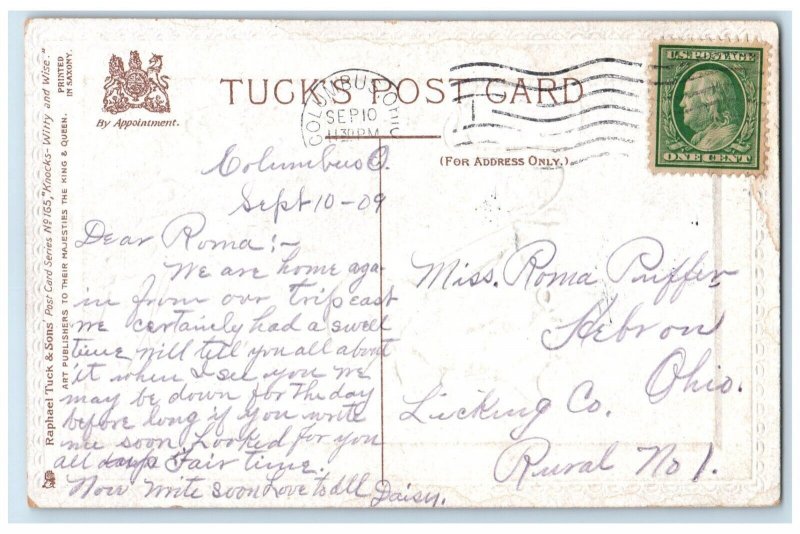 Raphael Tuck & Sons' Post Card Series Nº 165, "Knocks - Witty and Wise."
ART PUBLISHERS TO THEIR MAJESTIES THE KING & QUEEN.
PRINTED
IN SAXONY.
By Appointment.
TUCK'S POST CARD
COLUMBUS, OHIO
SEP 10
1130PM
U.S. POSTAGE
ONE CENT
(FOR ADDRESS ONLY.)
Columbus O.
Sept 10-09
Dear Roma:-
We are home aga-
in from our trip east
we certainly had a swell
time will tell you all about
it when I see you We
may be down for the day
before long if you write
me soon. Looked for you
all Fair time.
Now write soon Love to all Daisy.
Miss. Roma Puffer
Hebron
Ohio.
Licking Co.
Rural No 1.